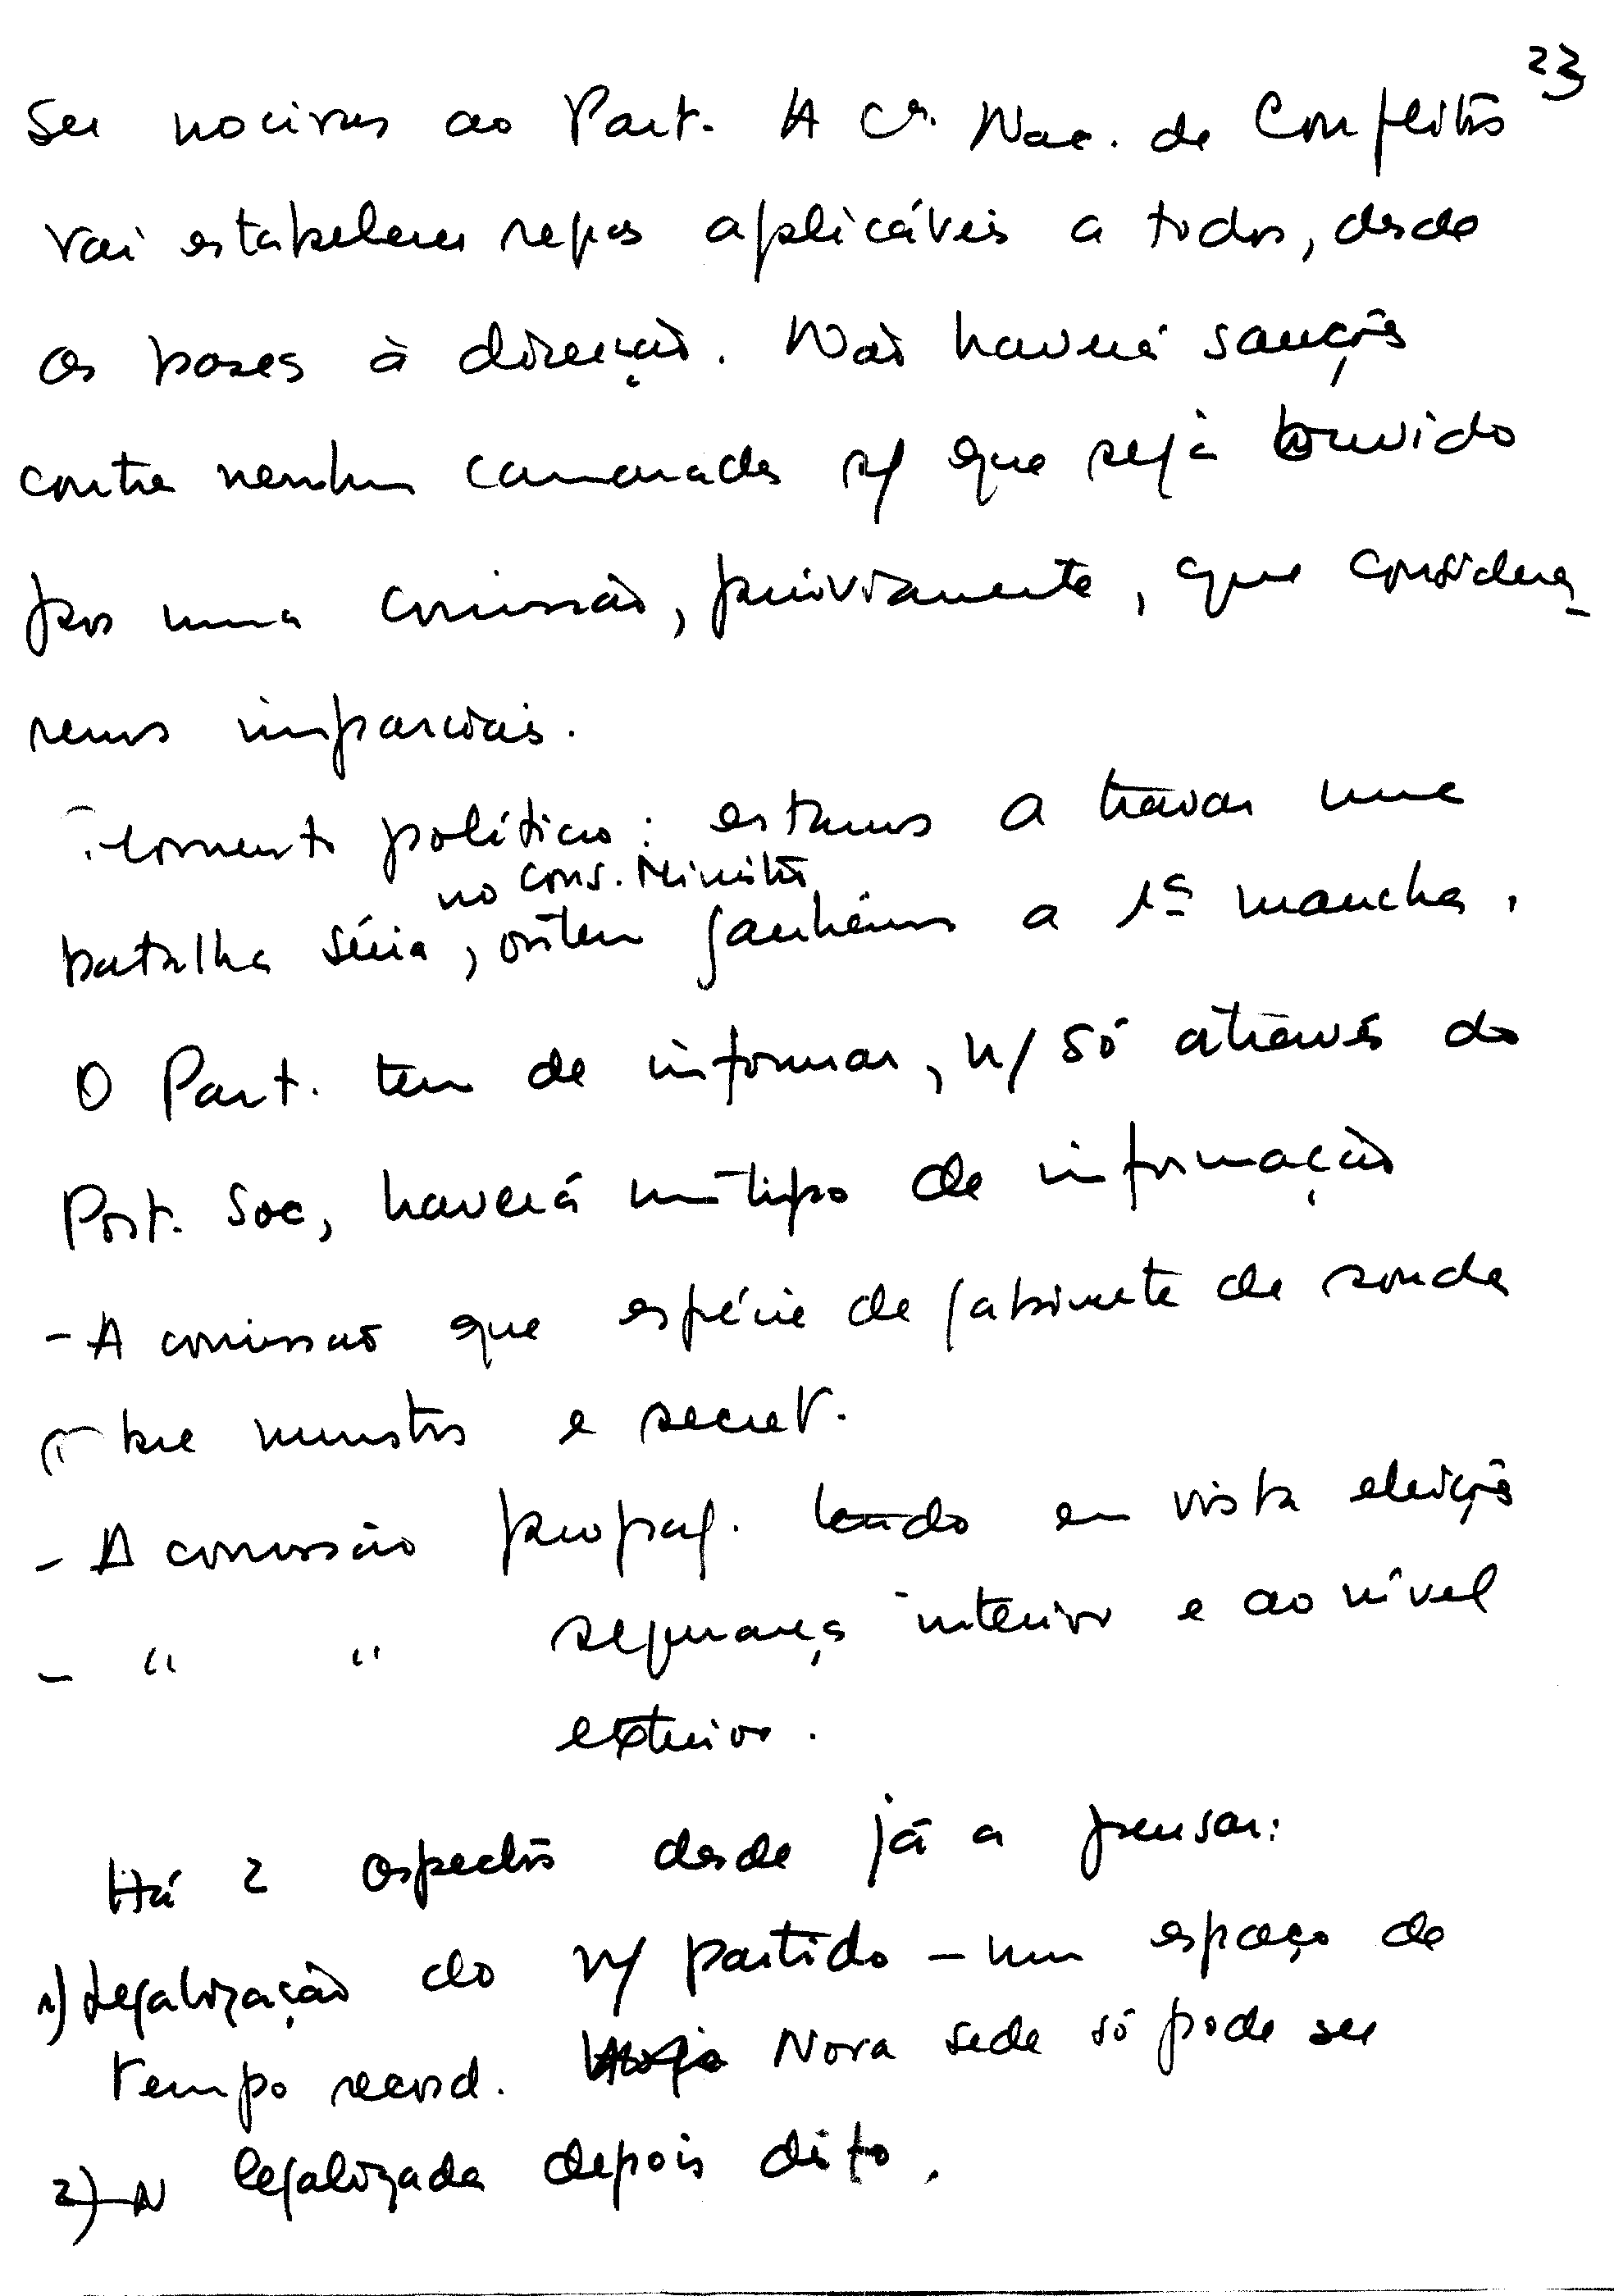 23
ser nocivas ao Part. A Cª. Nac. de Conflitos
vai estabelecer regras aplicáveis a todos, desde
as bases à direcção. Não haverá sanções
contra nenhum camarada s/ que seja ouvido
por uma comissão, previamente, que considera-
remos imparciais.
Momento político: estamos a travar uma
no Cons. Ministros
batalha séria, ontem ganhámos a 1ª mancha.
O Part. tem de informar, n/ só através do
Port. Soc, haverá um tipo de informação
- A comissão que espécie de gabinete de ronda
bre ministros e secret.
- A comissão propag. tendo em vista eleições
- " " segurança interior e ao nível
exterior.
Há 2 aspectos desde já a pensar:
1) Legalização do n/ partido - um espaço de
tempo record. Nova sede só pode ser
2) N legalizada depois disto.